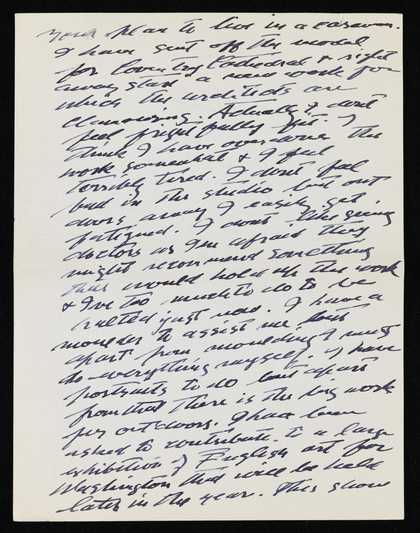 your plan to live in a caravan.
I have sent off the model
for Coventry Cathedral & right
away start a new work for
which the architects are
clamouring. Actually I don't
feel frightfully fit. I
think I have overdone the
work somewhat & I feel
terribly tired. I don't feel
bad in the studio but out
doors away I easily get
fatigued. I don't like seeing
doctors as I'm afraid they
might recommend something
that would hold up the work
& I've too much to do to be
halted just now. I have a
moulder to assist me but
apart from moulding I must
do everything myself. I have
portraits to do but apart
from that there is the big work
for outdoors. I have been
asked to contribute to a large
exhibition of English art for
Washington that will be held
later in the year. This show